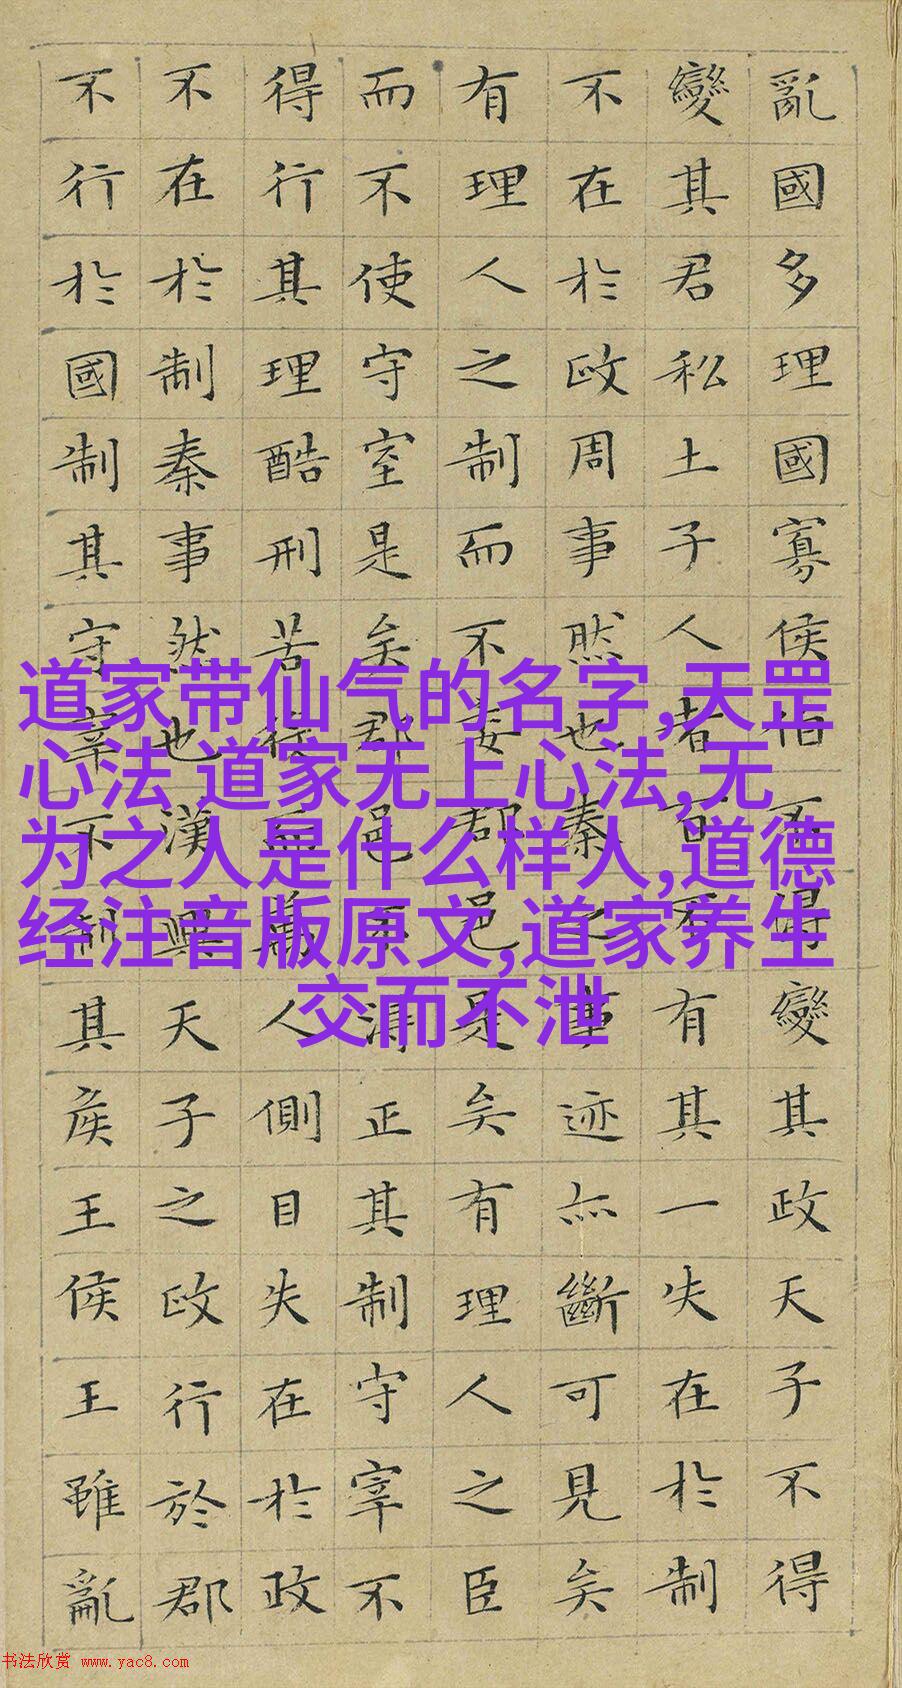 亂國多理國寡侯伯不得變其政天子不得
變其君私土子人者百不有其一失在於制
不在於政周事然也秦之事迹亦斷可見矣
有理人之制而不委郡邑是矣有理人之臣
而不使守宰是矣郡邑不得正其制守宰不
得行其理酷刑苦役而萬人側目失在於政
不在於制秦事然也漢興天子之政行於郡
不行於國制其守宰不制其侯王侯王雖亂
道家带仙气的名字,天罡
心法 道家无上心法,无
为之人是什么样人,道德
经注音版原文,道家养生
交而不泄
书法欣赏 www.yac8.com